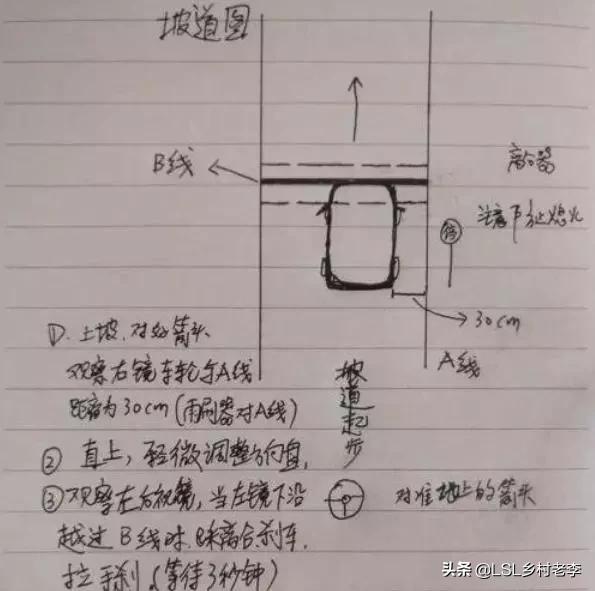 坡道图
B线
离合器
注意下坡熄火
停
30cm
A线
①. 上坡,对好箭头
观察右镜车轮与A线
距离为30cm(雨刷器对A线)
坡道起步
② 直上,轻微调整方向盘,
③观察左后视镜,当左镜下沿
对准地上的箭头
越过B线时,踩离合刹车,
拉手刹(等待3秒钟)
头条 @LSL乡村老李